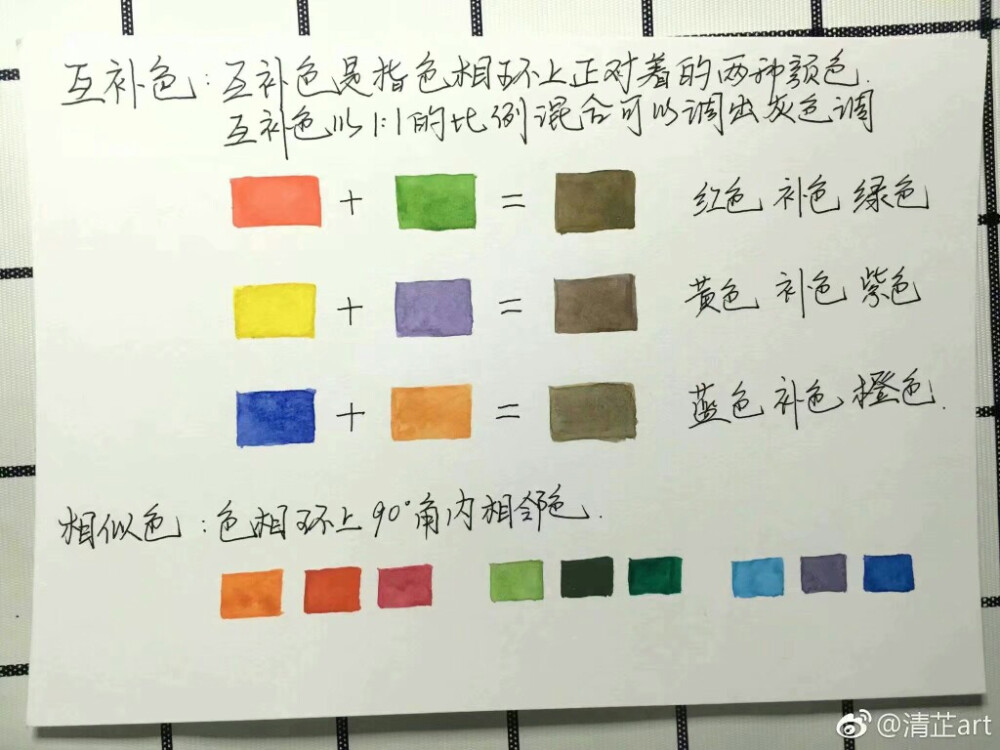 互补色：互补色是指色相环上正对着的两种颜色.
互补色以1:1的比例混合可以调出灰色调
+ = 红色 补色 绿色
+ = 黄色 补色 紫色
+ = 蓝色 补色 橙色.
相似色：色相环上90°角内相邻色.
@清芷art